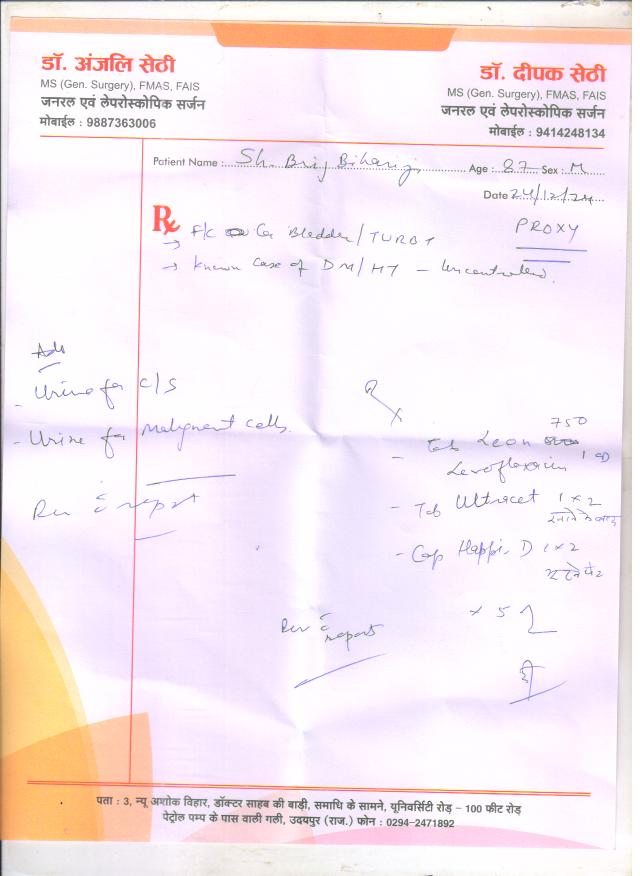 डॉ. अंजलि सेठी
MS (Gen. Surgery), FMAS, FAIS
जनरल एवं लेपरोस्कोपिक सर्जन
मोबाईल : 9887363006
डॉ. दीपक सेठी
MS (Gen. Surgery), FMAS, FAIS
जनरल एवं लेपरोस्कोपिक सर्जन
मोबाईल : 9414248134
Patient Name : Sh. Brij Bihariji Age : 87 Sex : M
Date 24/12/24
PROXY
Rx
→ F/c Ca Bladder / TURBT
→ Known case of DM/HT - Uncontrolled.
Adv
- Urine for C/S
- Urine for Malignant cells.
Rev c̄ report
Rx
- Tab Leon 750
Levofloxacin 1 OD
- Tab Ultracet 1 x 2
खाने के बाद
- Cap Happi. D 1 x 2
x 5
Rev c̄ reports
पता : 3, न्यू अशोक विहार, डॉक्टर साहब की बाड़ी, समाधि के सामने, यूनिवर्सिटी रोड़ - 100 फीट रोड़
पेट्रोल पम्प के पास वाली गली, उदयपुर (राज.) फोन : 0294-2471892